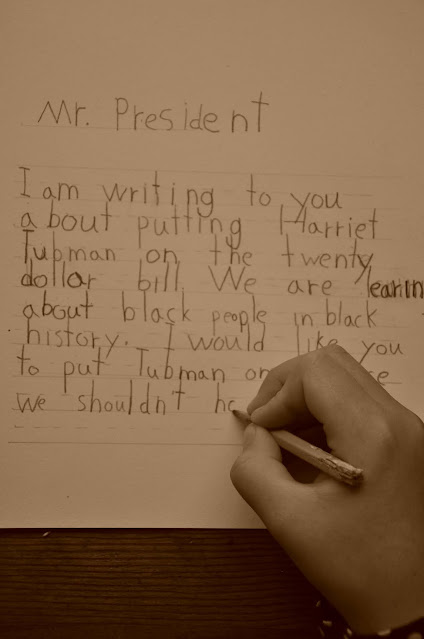 Mr. President
I am writing to you
about putting Harriet
Tubman on the twenty
dollar bill. We are learin
about black people in black
history. I would like you
to put Tubman on
we shouldn't